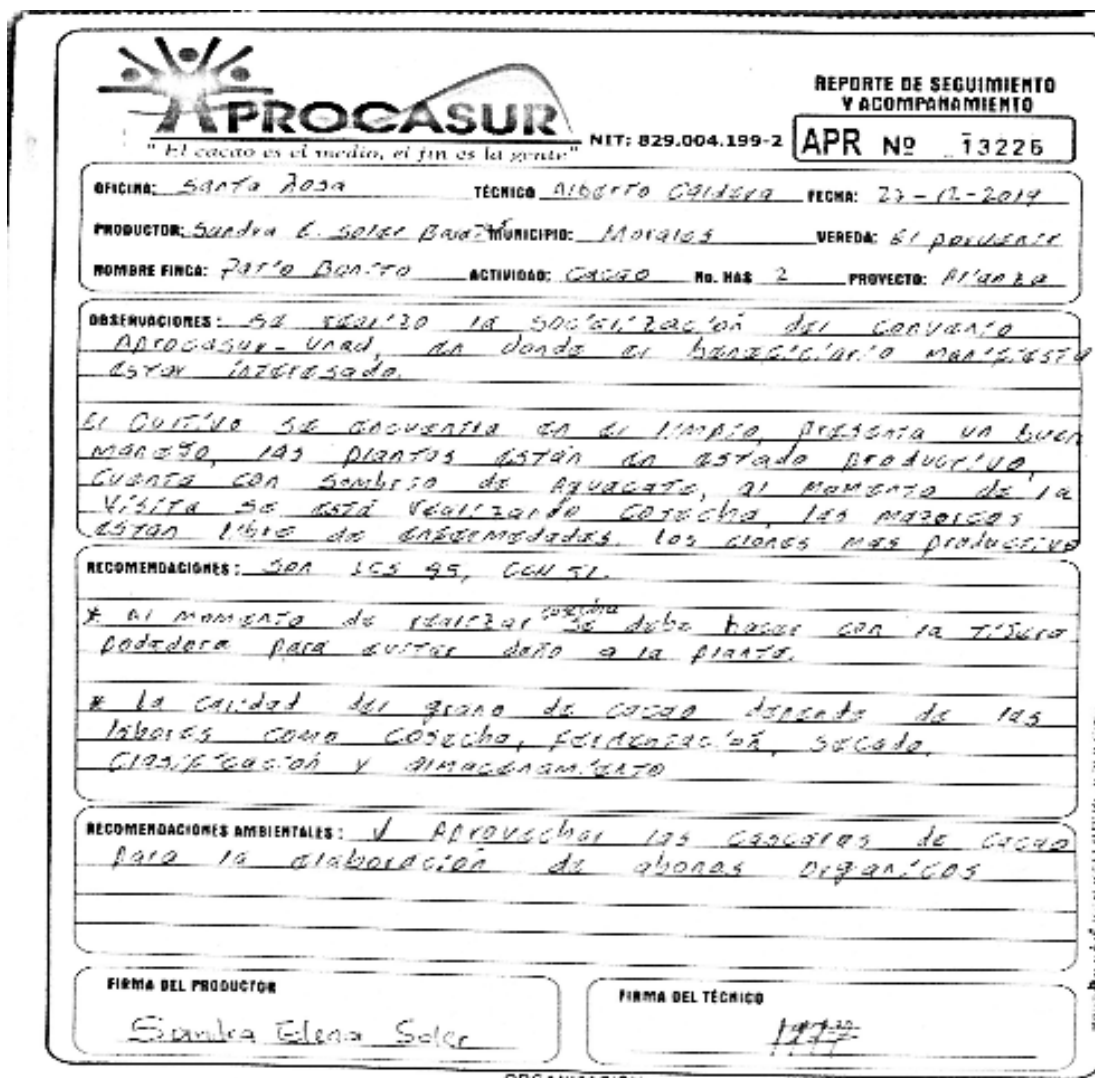 REPORTE DE SEGUIMIENTO
Y ACOMPAÑAMIENTO
APROCASUR
"El cacao es el medio, el fin es la gente"
NIT: 829.004.199-2
APR Nº 13226
OFICINA: Santa Rosa TÉCNICO Alberto Caldera FECHA: 27-12-2019
PRODUCTOR: Sandra E. Soler MUNICIPIO: Morales VEREDA: El porvenir
NOMBRE FINCA: Patio Bonito ACTIVIDAD: Cacao No. HAS 2 PROYECTO: Alianza
OBSERVACIONES: se realizo la socialización del convenio
Aprocasur-Unad, en donde el beneficiario manifiesta
estar interesado.
El Cultivo se encuentra en el limpio, presenta un buen
manejo, las plantas están en estado productivo,
cuenta con sombrio de Aguacate, al momento de la
Visita se está realizando cosecha, las mazorcas
están libre de enfermedades. los clones mas productivo
RECOMENDACIONES: son ICS 95, CCN 51.
* Al momento de realizar cosecha se debe hacer con la tijera
podadora para evitar daño a la planta.
* La calidad del grano de cacao depende de las
labores como cosecha, fermentación, secado,
clasificación y almacenamiento
RECOMENDACIONES AMBIENTALES: √ Aprovechar las cascaras de cacao
para la elaboración de abonos organicos
FIRMA DEL PRODUCTOR
Sandra Elena Soler
FIRMA DEL TÉCNICO